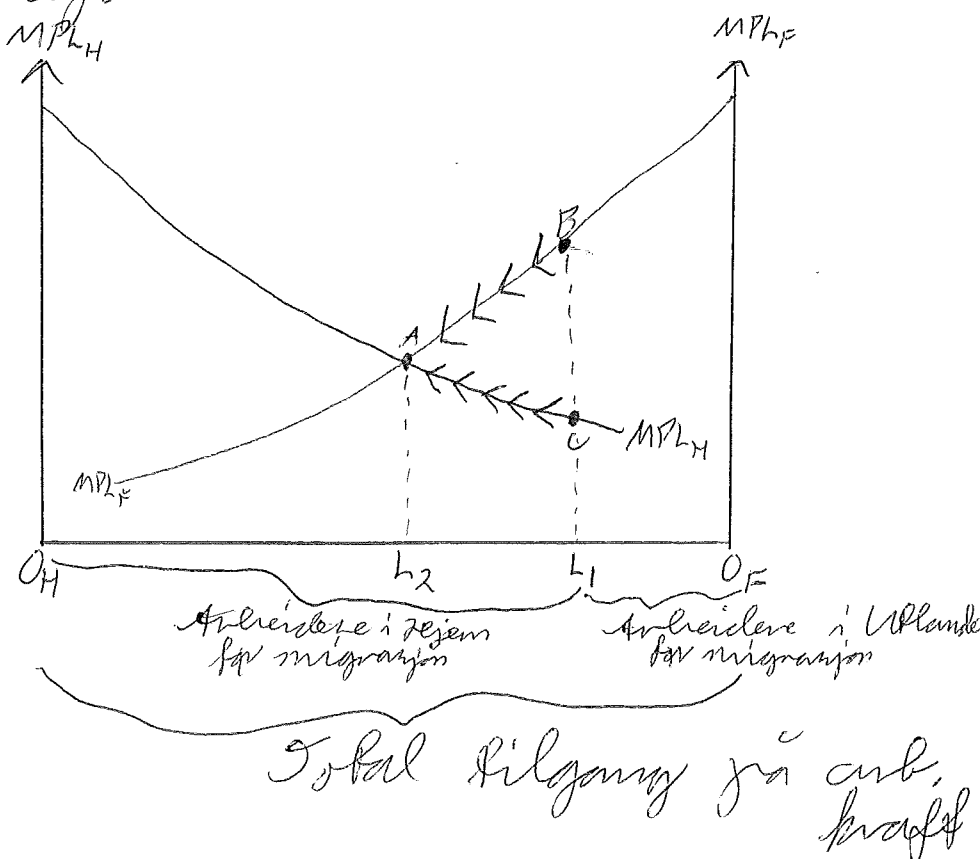 MPL_H
MPL_F
B
A
C
MPL_H
MPL_F
O_H
L_2
L_1
O_F
Arbeidere i Hjem
før migrasjon
Arbeidere i Utlandet
før migrasjon
Total tilgang på arb.
kraft